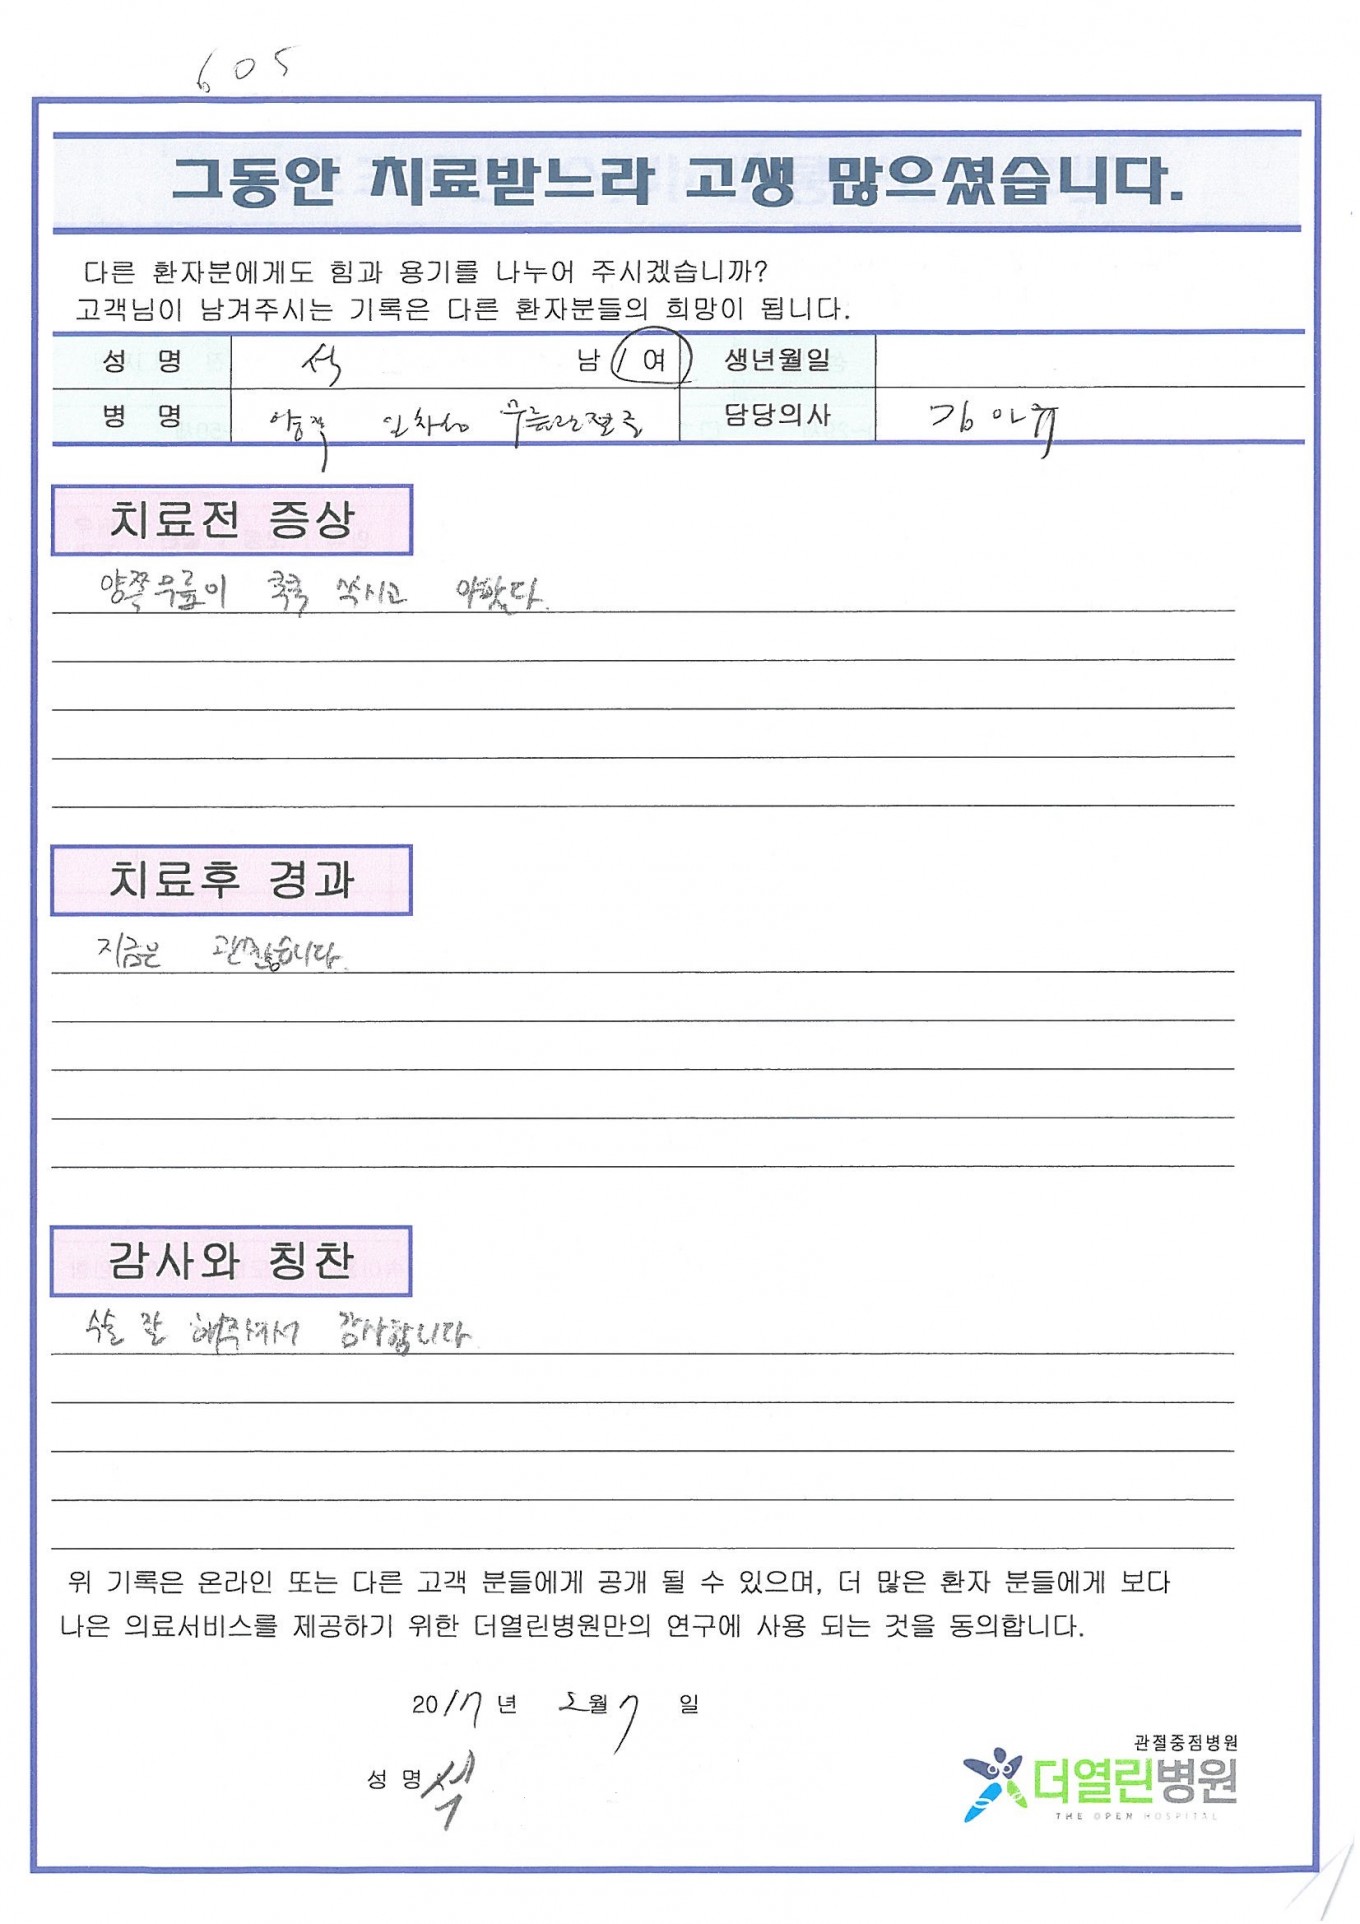 605
그동안 치료받느라 고생 많으셨습니다.
다른 환자분에게도 힘과 용기를 나누어 주시겠습니까?
고객님이 남겨주시는 기록은 다른 환자분들의 희망이 됩니다.
성 명 석 남 / 여 생년월일
병 명 양쪽 일차성 무릎관절증 담당의사
치료전 증상
양쪽무릎이 쿡쿡 쑥시고 아팠다.
치료후 경과
지금은 괜찮습니다.
감사와 칭찬
수술 잘 해주셔서 감사합니다
위 기록은 온라인 또는 다른 고객 분들에게 공개 될 수 있으며, 더 많은 환자 분들에게 보다
나은 의료서비스를 제공하기 위한 더열린병원만의 연구에 사용 되는 것을 동의합니다.
2017년 2월 7 일
성 명 석
관절중점병원
더열린병원
THE OPEN HOSPITAL